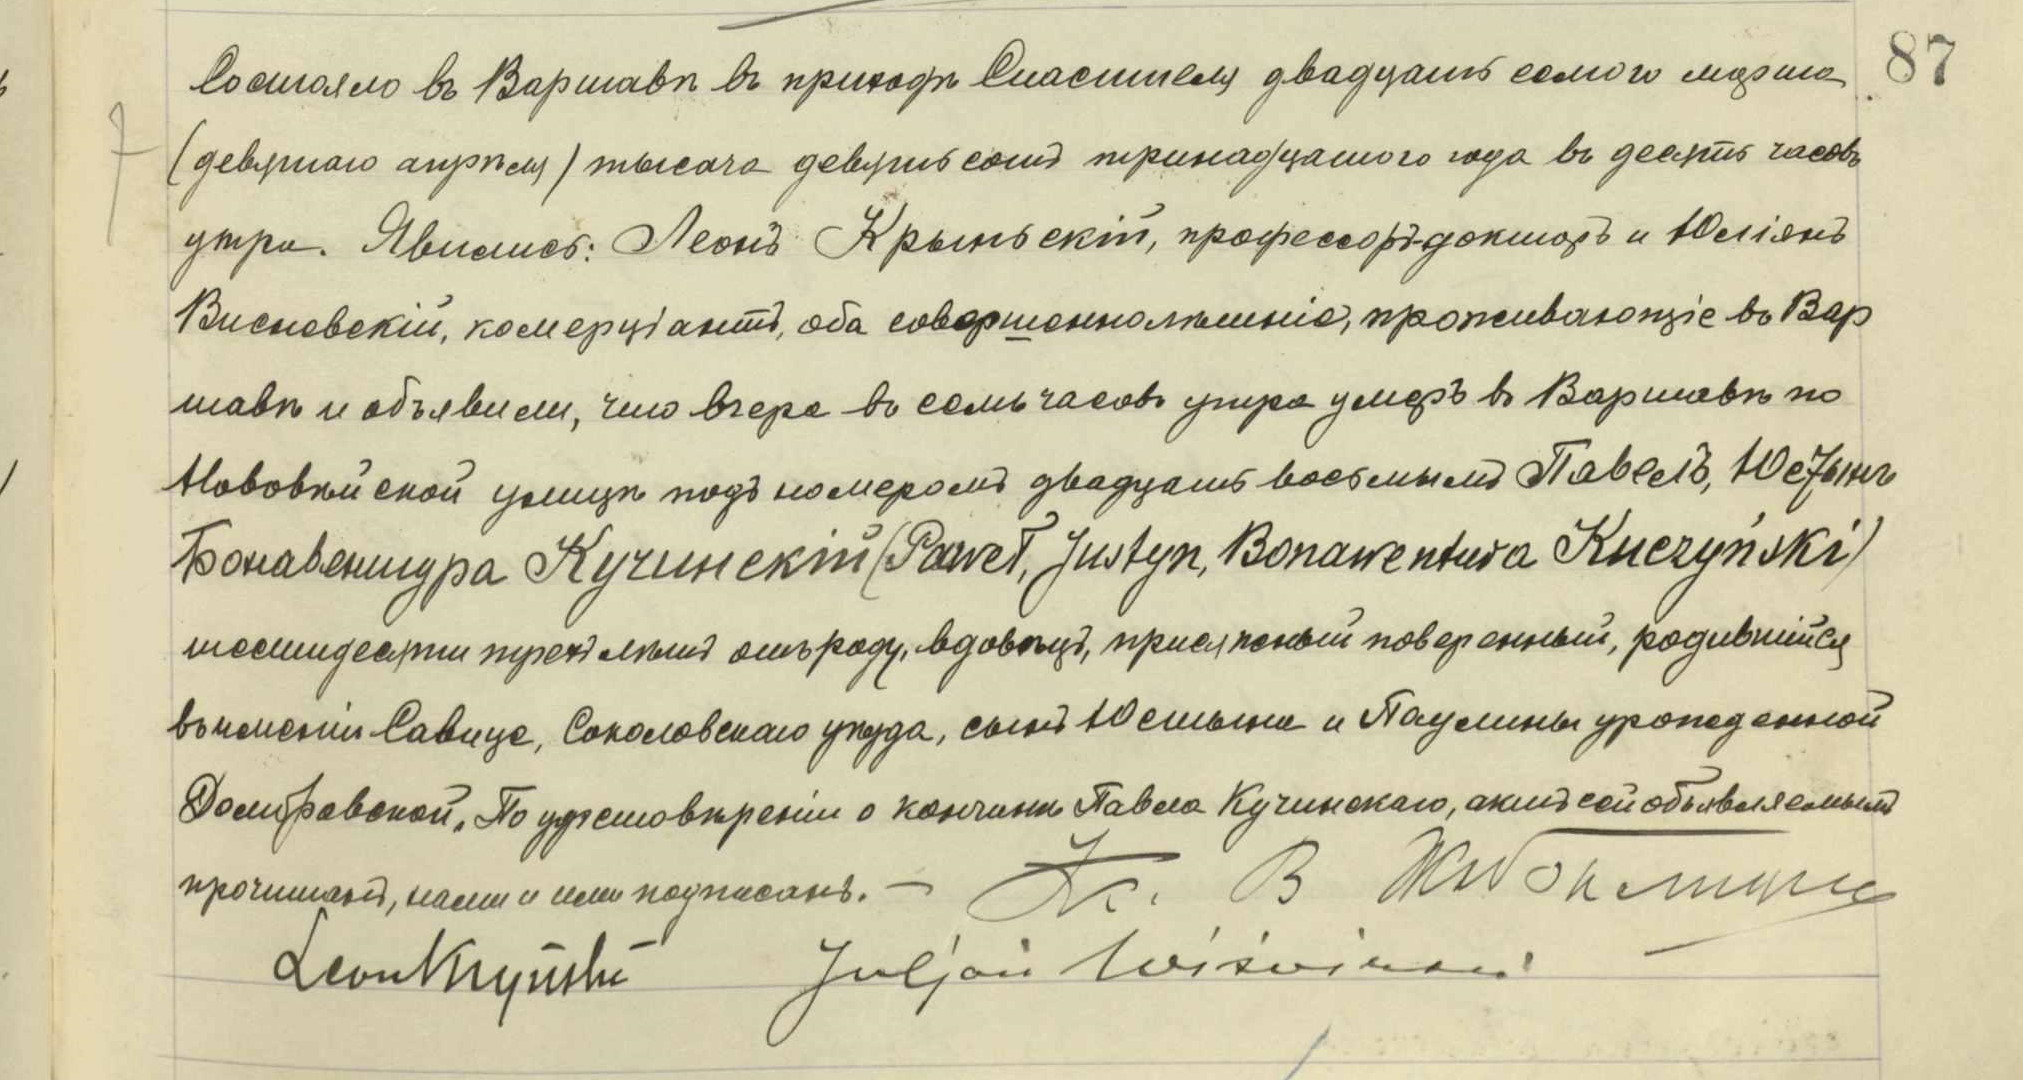 87
Состояло въ Варшавѣ въ приходѣ Спасителя двадцать седьмого марта
7
(девятаго апрѣля) тысяча девятьсотъ тринадцатого года въ десять часовъ
утра. Явились: Леонъ Крыньскій, профессоръ-докторъ и Юліянъ
Висневскій, комерціантъ, оба совершеннолѣтніе, проживающіе въ Вар
шавѣ и объявили, что вчера въ семь часовъ утра умеръ въ Варшавѣ по
Нововѣйской улицѣ подъ номеромъ двадцать восьмымъ Павелъ, Юстынъ
Бонавентура Кучинскій (Paweł, Justyn, Bonawentura Kuczyński)
шестидесяти трехъ лѣтъ отъ роду, вдовецъ, присяжный повѣренный, родившійся
въ имѣніи Савице, Соколовскаго уѣзда, сынъ Юстына и Паулины урожденной
Домбровской. По удостовѣреніи о кончинѣ Павла Кучинскаго, актъ сей объявляемымъ
прочитанъ, нами и ими подписанъ. — Кс. В
Leon Kryński Juljan